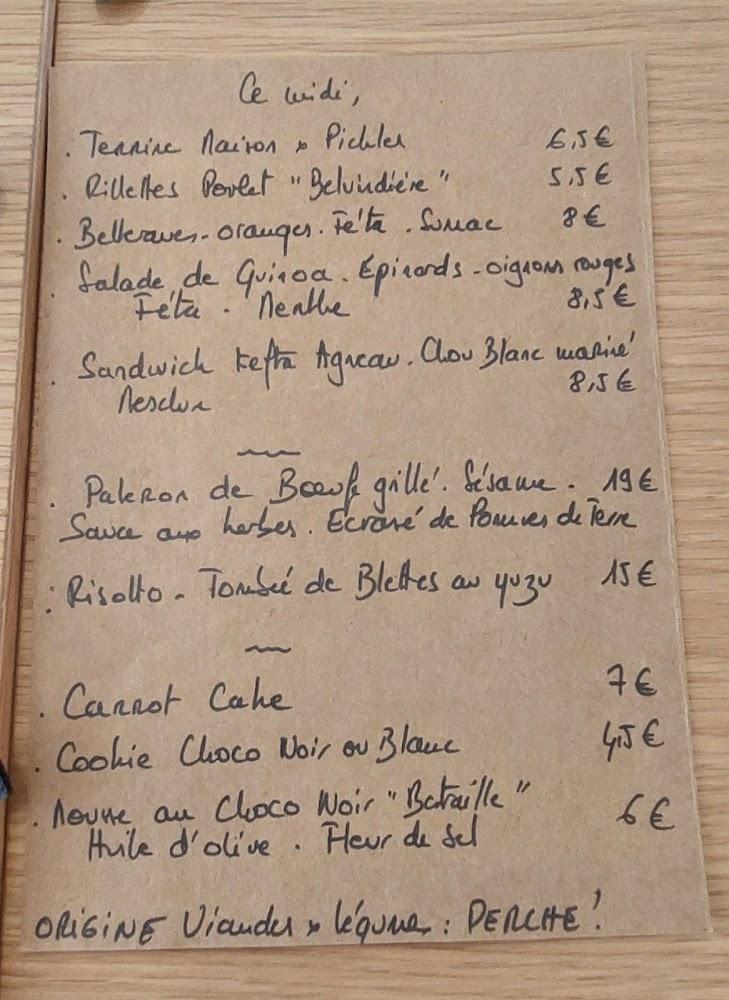 Ce midi,
. Terrine Maison x Pickles 6,5€
. Rillettes Poulet "Belvindière" 5,5€
. Betteraves - oranges . Féta . Sumac 8€
. Salade de Quinoa . Épinards - oignons rouges
Féta . Menthe 8,5€
. Sandwich Kefta Agneau . Chou Blanc mariné
Mesclun 8,5€
. Paleron de Bœuf grillé . Sésame . 19€
Sauce aux herbes . Ecrasé de Pommes de Terre
: Risotto - Tombée de Blettes au yuzu 15€
. Carrot Cake 7€
. Cookie Choco Noir ou Blanc 4,5€
. Mousse au Choco Noir "Bataille" 6€
Huile d'olive . Fleur de Sel
ORIGINE Viandes x légumes : PERCHE !